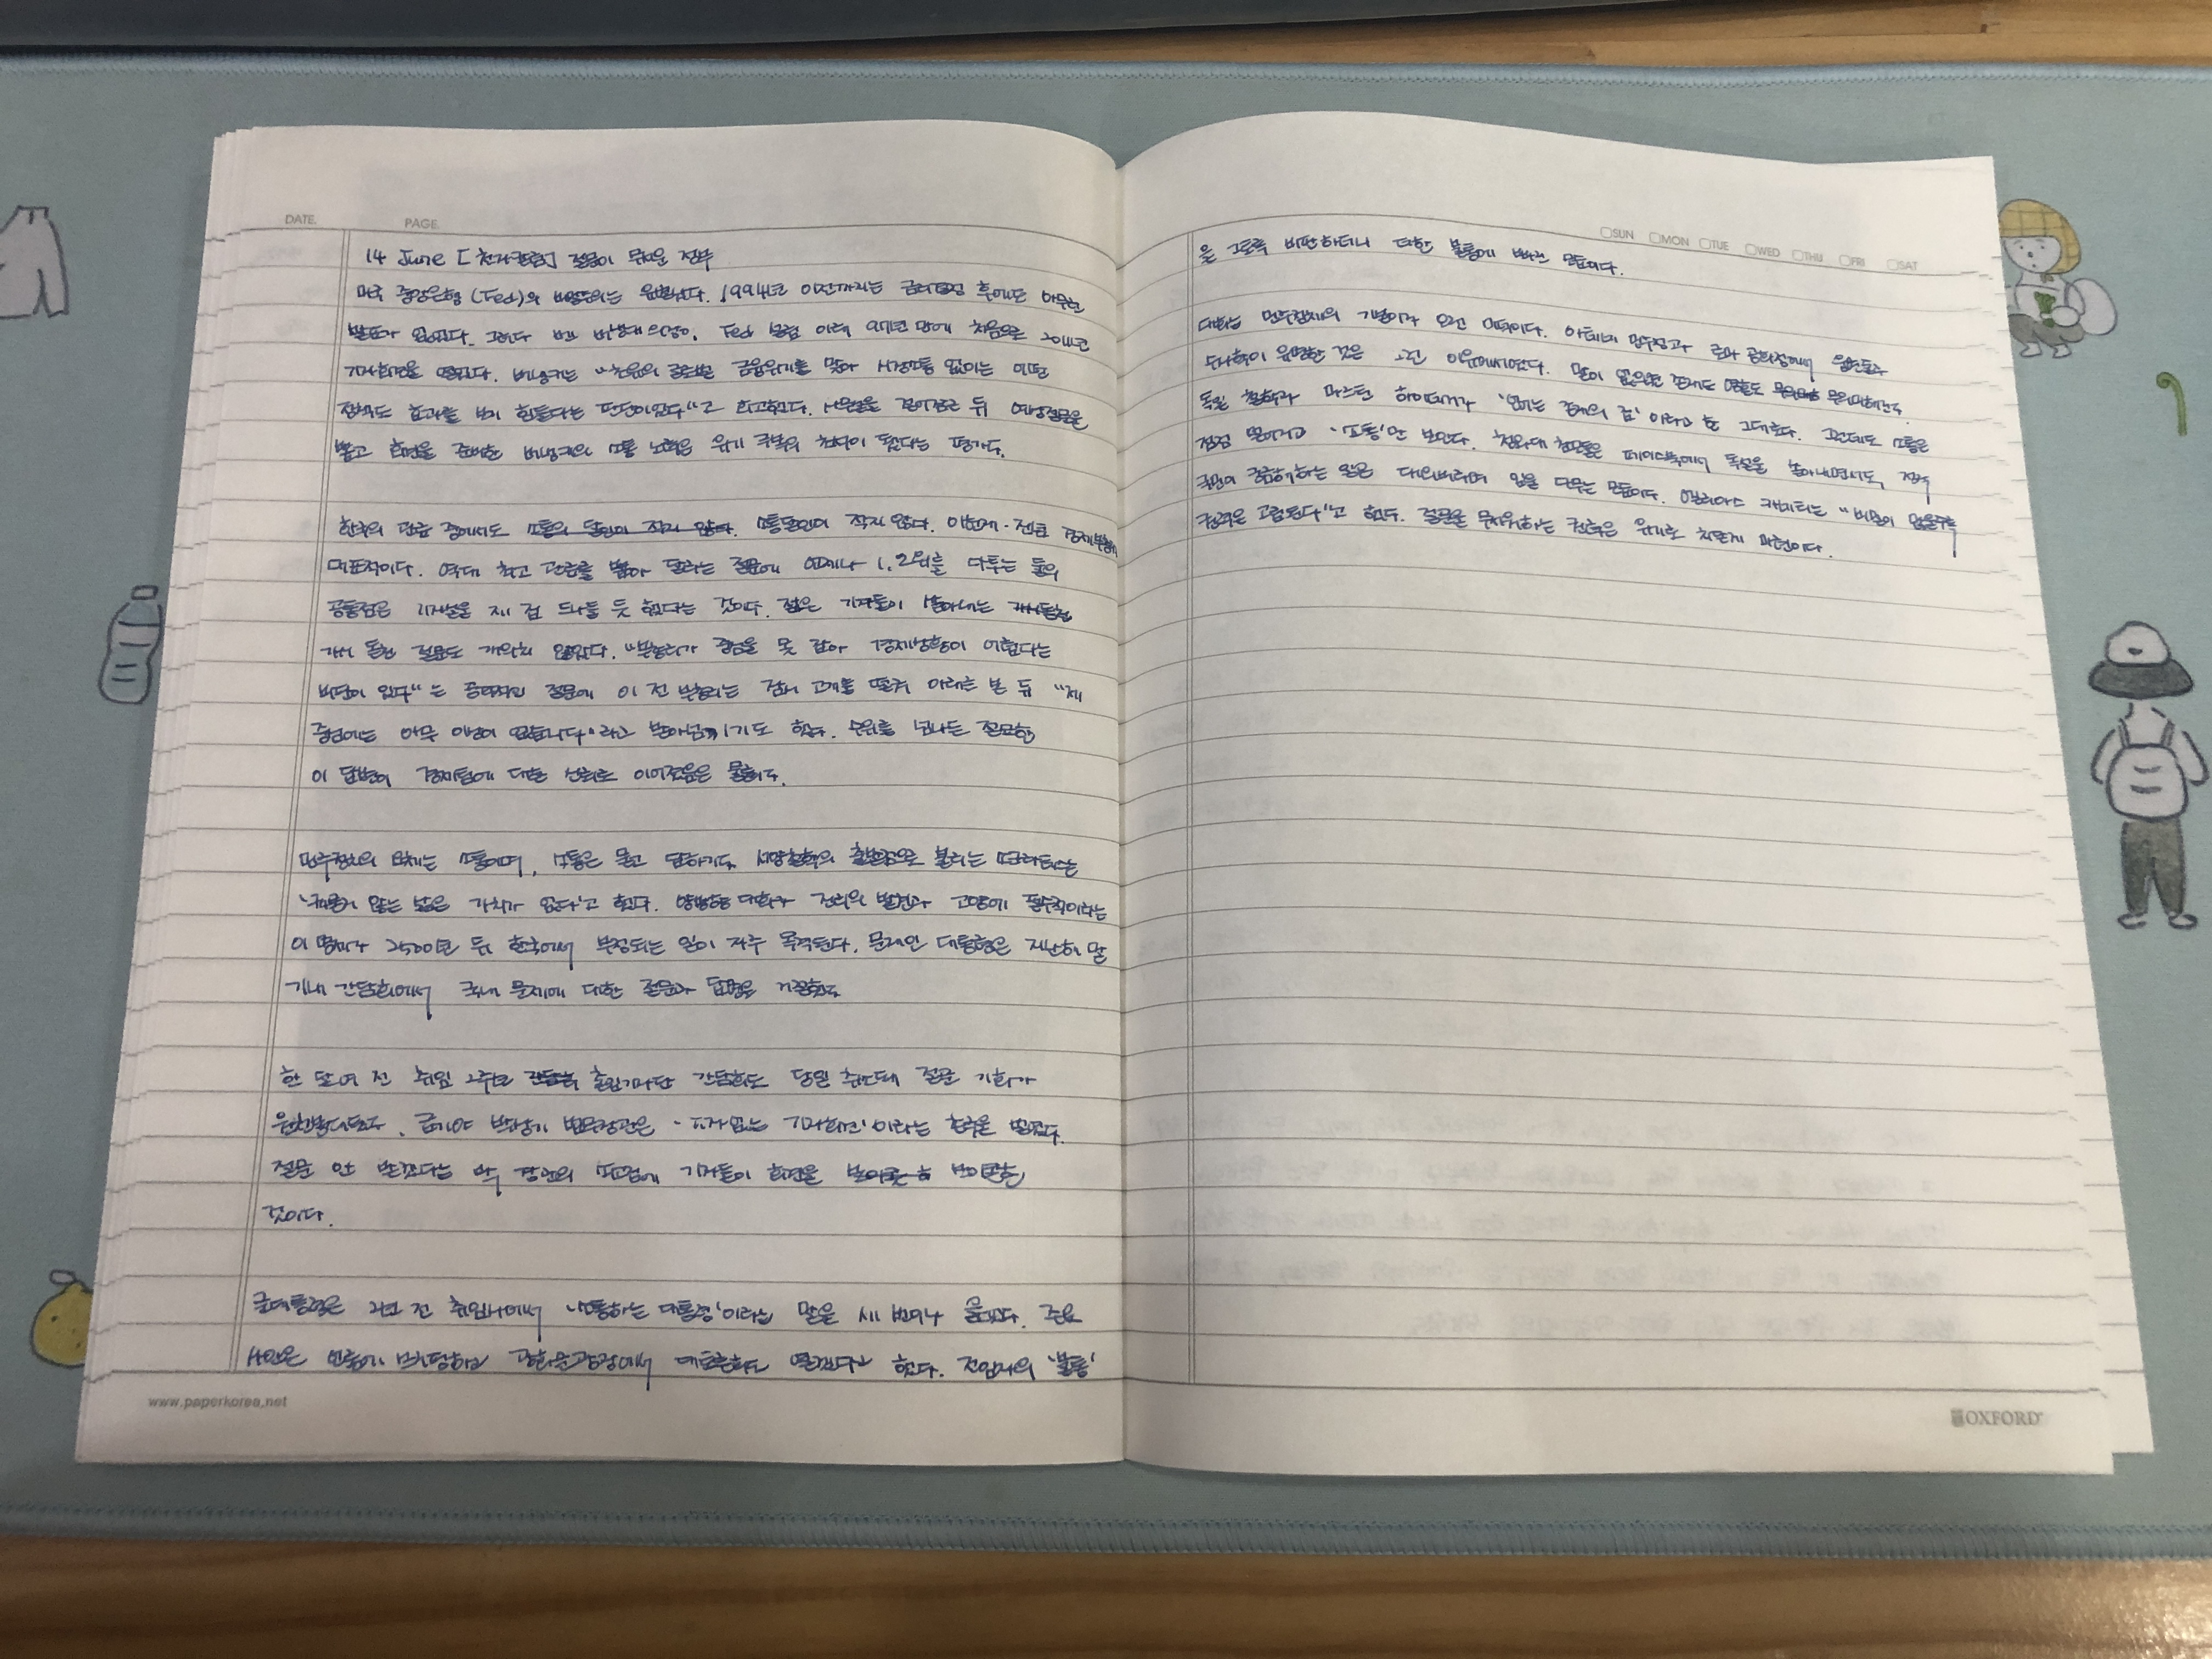 DATE. PAGE.
14 June [천자칼럼] 질문이 무서운 정부
미국 중앙은행(Fed)의 비밀주의는 유별났다. 1994년 이전까지는 금리결정 후에도 아무런
발표가 없었다. 그러다 벤 버냉키 의장이, Fed 설립 이래 97년 만에 처음으로 2011년
기자회견을 열었다. 버냉키는 "초유의 글로벌 금융위기를 맞아 시장소통 없이는 어떤
정책도 효과를 보기 힘들다는 판단이었다"고 회고했다.
뽑고 회견을 준비한 버냉키의 소통 노력은 위기 극복의 첫단이 됐다는 평가다.
한국의 관료 중에서도 소통의 달인이 적지 않다. 소통달인이 적지 않다. 이헌재·전윤 경제부총리
대표적이다. 역대 최고 관료를 뽑아 달라는 질문에 언제나 1, 2위를 다투는 둘의
공통점은 기자실을 제 집 드나들 듯 했다는 것이다. 젊은 기자들이 쏟아내는
가시 돋친 질문도 개의치 않았다. "부총리가 중심을 못 잡아 경제상황이 어렵다는
비판이 있다"는 공격적인 질문에 이 전 부총리는 잠시 고개를 떨궈 아래를 본 뒤 "제
중심에는 아무 이상이 없습니다"라고 받아넘기기도 했다. 수위를 넘나든 질문과
이 답변이 경제팀에 대한 신뢰로 이어졌음은 물론이다.
민주정치의 요체는 소통이며, 소통은 묻고 답하기다. 서양철학의 출발점으로 불리는 소크라테스는
'질문이 없는 삶은 가치가 없다'고 했다. 쌍방향 대화가 진리의 발견과 고양에 필수적이라는
이 명제가 2500년 뒤 한국에서 부정되는 일이 자주 목격된다. 문재인 대통령은 지난해 말
기내 간담회에서 국내 문제에 대한 질문과 답변을 거절했다
한 달여 전 취임 2주년 출입기자단 간담회도 당일 취소돼 질문 기회가
원천봉쇄됐다. 급기야 박상기 법무장관은 '기자 없는 기자회견'이라는 촌극을 벌였다.
질문 안 받겠다는 박 장관의 고집에 기자들이 회견을 보이콧한
것이다.
문대통령은 2년 전 취임사에서 '소통하는 대통령'이라는 말을 세 번이나 했다. 주요
사안은 언론에 브리핑하고 광화문광장에서 대토론회도 열겠다고 했다. 전임자의 '불통'
www.paperkorea.net
SUN MON TUE WED THU FRI SAT
을 그토록 비판하더니 더한 불통에 빠진 모습이다.
대화는 민주정치의 기본이자 오랜 미덕이다. 아테네 민주정과 로마 공화정에서 웅변술과
수사학이 유행한 것은 그런 이유에서였다. 말이 없으면 존재도 무의미해진다
독일 철학자 마르틴 하이데거가 '언어는 존재의 집'이라고 한 그대로다. 그런데도 소통은
점점 멀어지고 '쇼통'만 보인다. 청와대 참모들은 페이스북에서 독설을 쏟아내면서도, 정작
국민이 궁금해하는 일은 대외비라며 입을 다무는 모습이다. 엘리아스 카네티는 "비밀이 많을수록
권력은 고립된다"고 했다. 질문을 무서워하는 권력은 위기로 치닫게 마련이다.
OXFORD